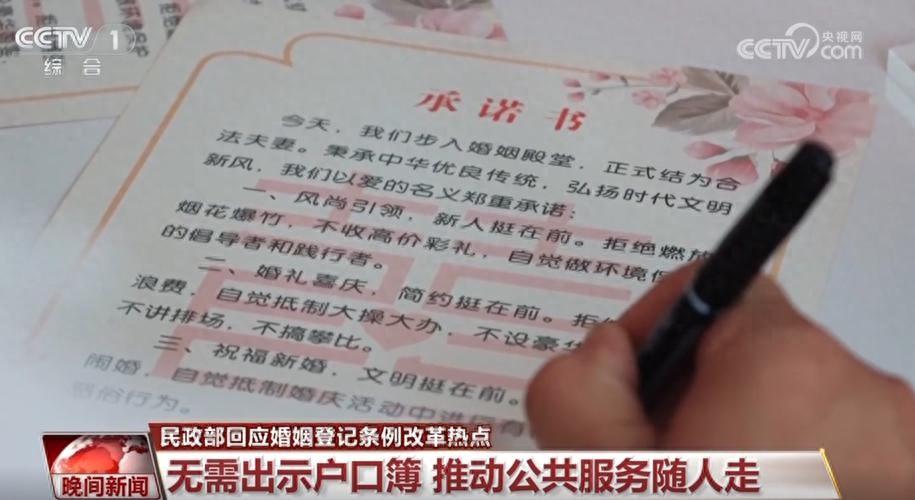 CCTV 1
综合
央视网
CCTV.com
承诺书
今天，我们步入婚姻殿堂，正式结为合
法夫妻。秉承中华优良传统，弘扬时代文明
新风，我们以爱的名义郑重承诺：
一、风尚引领，新人挺在前。拒绝燃放
烟花爆竹，不收高价彩礼，自觉做环境保
的倡导者和践行者。
二、婚礼喜庆，简约挺在前。拒绝
浪费，自觉抵制大操大办，不设豪华
不讲排场，不搞攀比。
三、祝福新婚，文明挺在前。
闹婚，自觉抵制婚庆活动中进行有
恶俗行为。
民政部回应婚姻登记条例改革热点
晚间新闻
无需出示户口簿 推动公共服务随人走